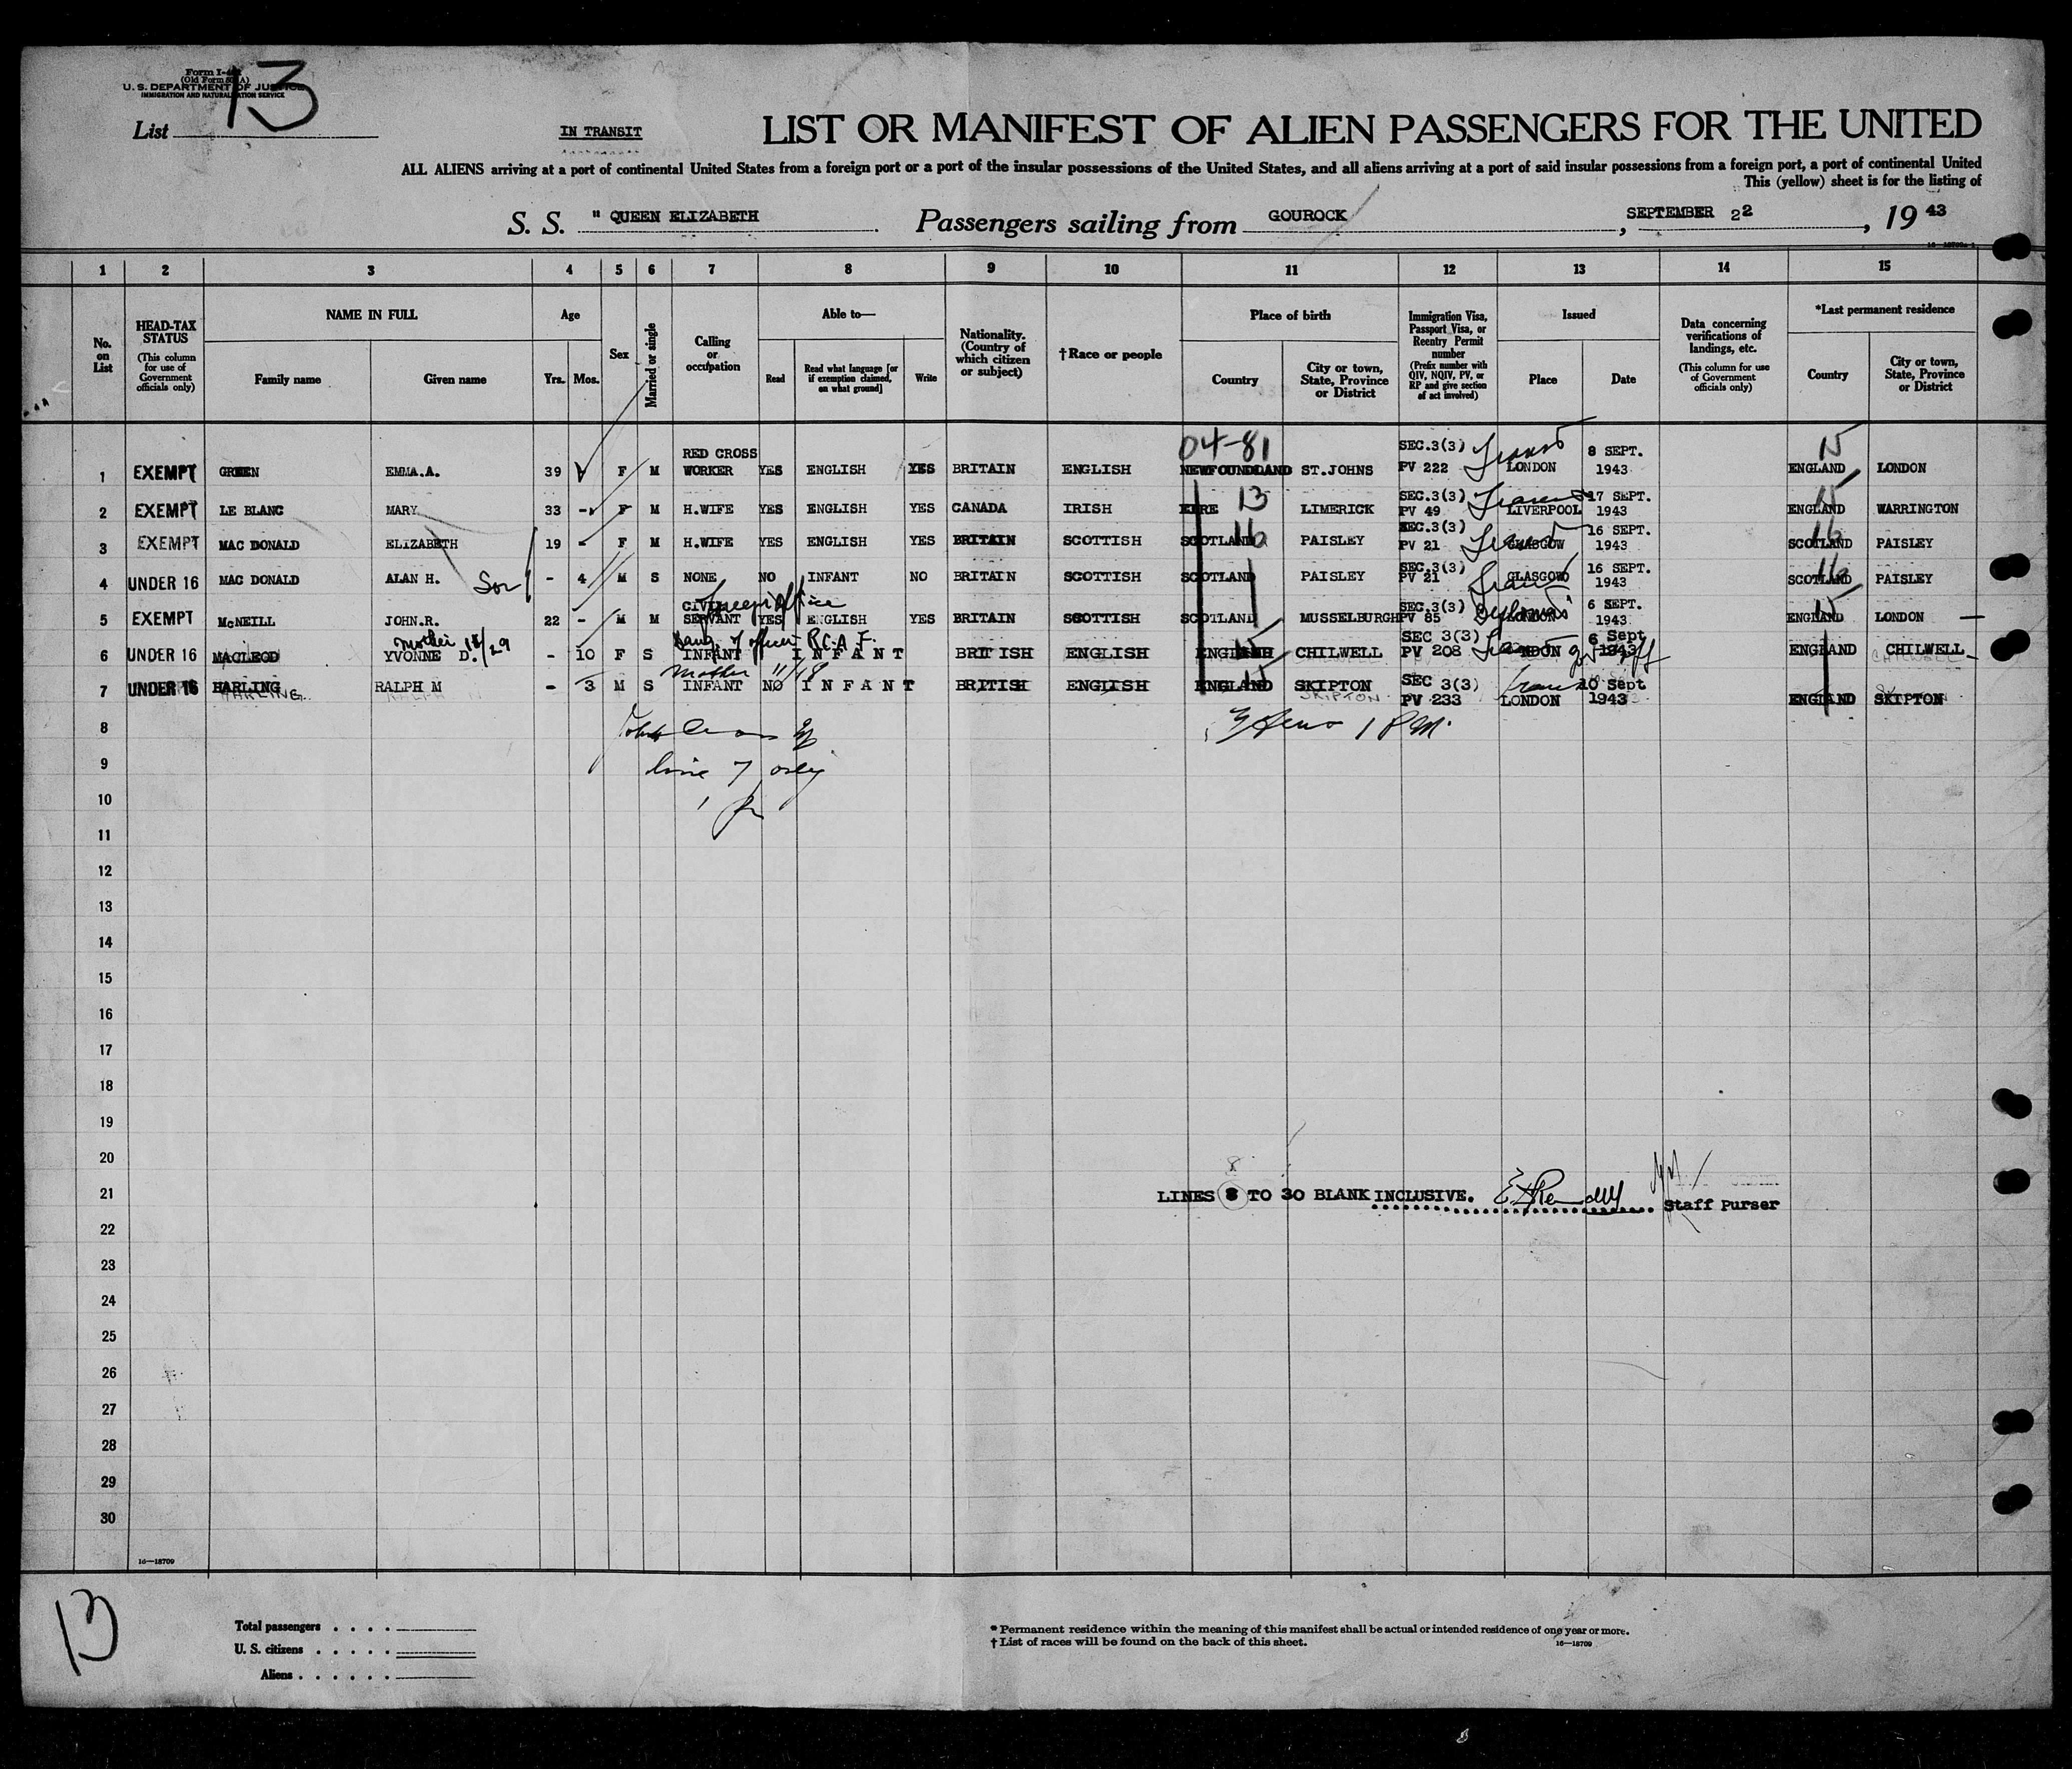 Form I-4
(Old Form 5 A)
U. S. DEPARTMENT OF JUSTICE
IMMIGRATION AND NATURALIZATION SERVICE
List 13
IN TRANSIT
LIST OR MANIFEST OF ALIEN PASSENGERS FOR THE UNITED
ALL ALIENS arriving at a port of continental United States from a foreign port or a port of the insular possessions of the United States, and all aliens arriving at a port of said insular possessions from a foreign port, a port of continental United
This (yellow) sheet is for the listing of
S. S. " QUEEN ELIZABETH Passengers sailing from GOUROCK, SEPTEMBER 22, 19 43
1 2 3 4 5 6 7 8 9 10 11 12 13 14 15
No. on List HEAD-TAX STATUS (This column for use of Government officials only) NAME IN FULL Family name Given name Age Yrs. Mos. Sex Married or single Calling or occupation Able to— Read Read what language [or if exemption claimed, on what ground] Write Nationality. (Country of which citizen or subject) †Race or people Place of birth Country City or town, State, Province or District Immigration Visa, Passport Visa, or Reentry Permit number (Prefix number with QIV, NQIV, PV, or RP and give section of act involved) Issued Place Date Data concerning verifications of landings, etc. (This column for use of Government officials only) *Last permanent residence Country City or town, State, Province or District
04-81 15
1 EXEMPT GREEN EMMA.A. 39 F M RED CROSS WORKER YES ENGLISH YES BRITAIN ENGLISH NEWFOUNDLAND ST.JOHNS SEC.3(3) PV 222 LONDON 8 SEPT. 1943 ENGLAND LONDON
2 EXEMPT LE BLANC MARY 33 - F M H.WIFE YES ENGLISH YES CANADA IRISH EIRE 13 LIMERICK SEC.3(3) PV 49 LIVERPOOL 17 SEPT. 1943 ENGLAND 15 WARRINGTON
3 EXEMPT MAC DONALD ELIZABETH 19 - F M H.WIFE YES ENGLISH YES BRITAIN SCOTTISH SCOTLAND 16 PAISLEY SEC.3(3) PV 21 GLASGOW 16 SEPT. 1943 SCOTLAND 16 PAISLEY
4 UNDER 16 MAC DONALD ALAN H. Son - 4 M S NONE NO INFANT NO BRITAIN SCOTTISH SCOTLAND PAISLEY SEC.3(3) PV 21 GLASGOW 16 SEPT. 1943 SCOTLAND 16 PAISLEY
5 EXEMPT McNEILL JOHN.R. 22 - M M CIVIL SERVANT Foreign Office YES ENGLISH YES BRITAIN SCOTTISH SCOTLAND MUSSELBURGH SEC.3(3) PV 85 LONDON 6 SEPT. 1943 ENGLAND 15 LONDON
6 UNDER 16 MACLEOD YVONNE D. Mother - 10 F S INFANT Daug. of officer R.C.A.F. INFANT BRITISH ENGLISH ENGLAND 15 CHILWELL SEC 3(3) PV 208 LONDON 6 Sept 1943 ENGLAND CHILWELL
7 UNDER 16 HARLING RALPH M - 3 M S INFANT Mother 11/18 NO INFANT BRITISH ENGLISH ENGLAND 15 SKIPTON SEC 3(3) PV 233 LONDON 10 Sept 1943 ENGLAND SKIPTON
8
9 line 7 only
10
11
12
13
14
15
16
17
18
19
20
21 LINES 8 TO 30 BLANK INCLUSIVE. Staff Purser
22
23
24
25
26
27
28
29
30
16—18709
13
Total passengers
U. S. citizens
Aliens
* Permanent residence within the meaning of this manifest shall be actual or intended residence of one year or more.
† List of races will be found on the back of this sheet.
16—18709